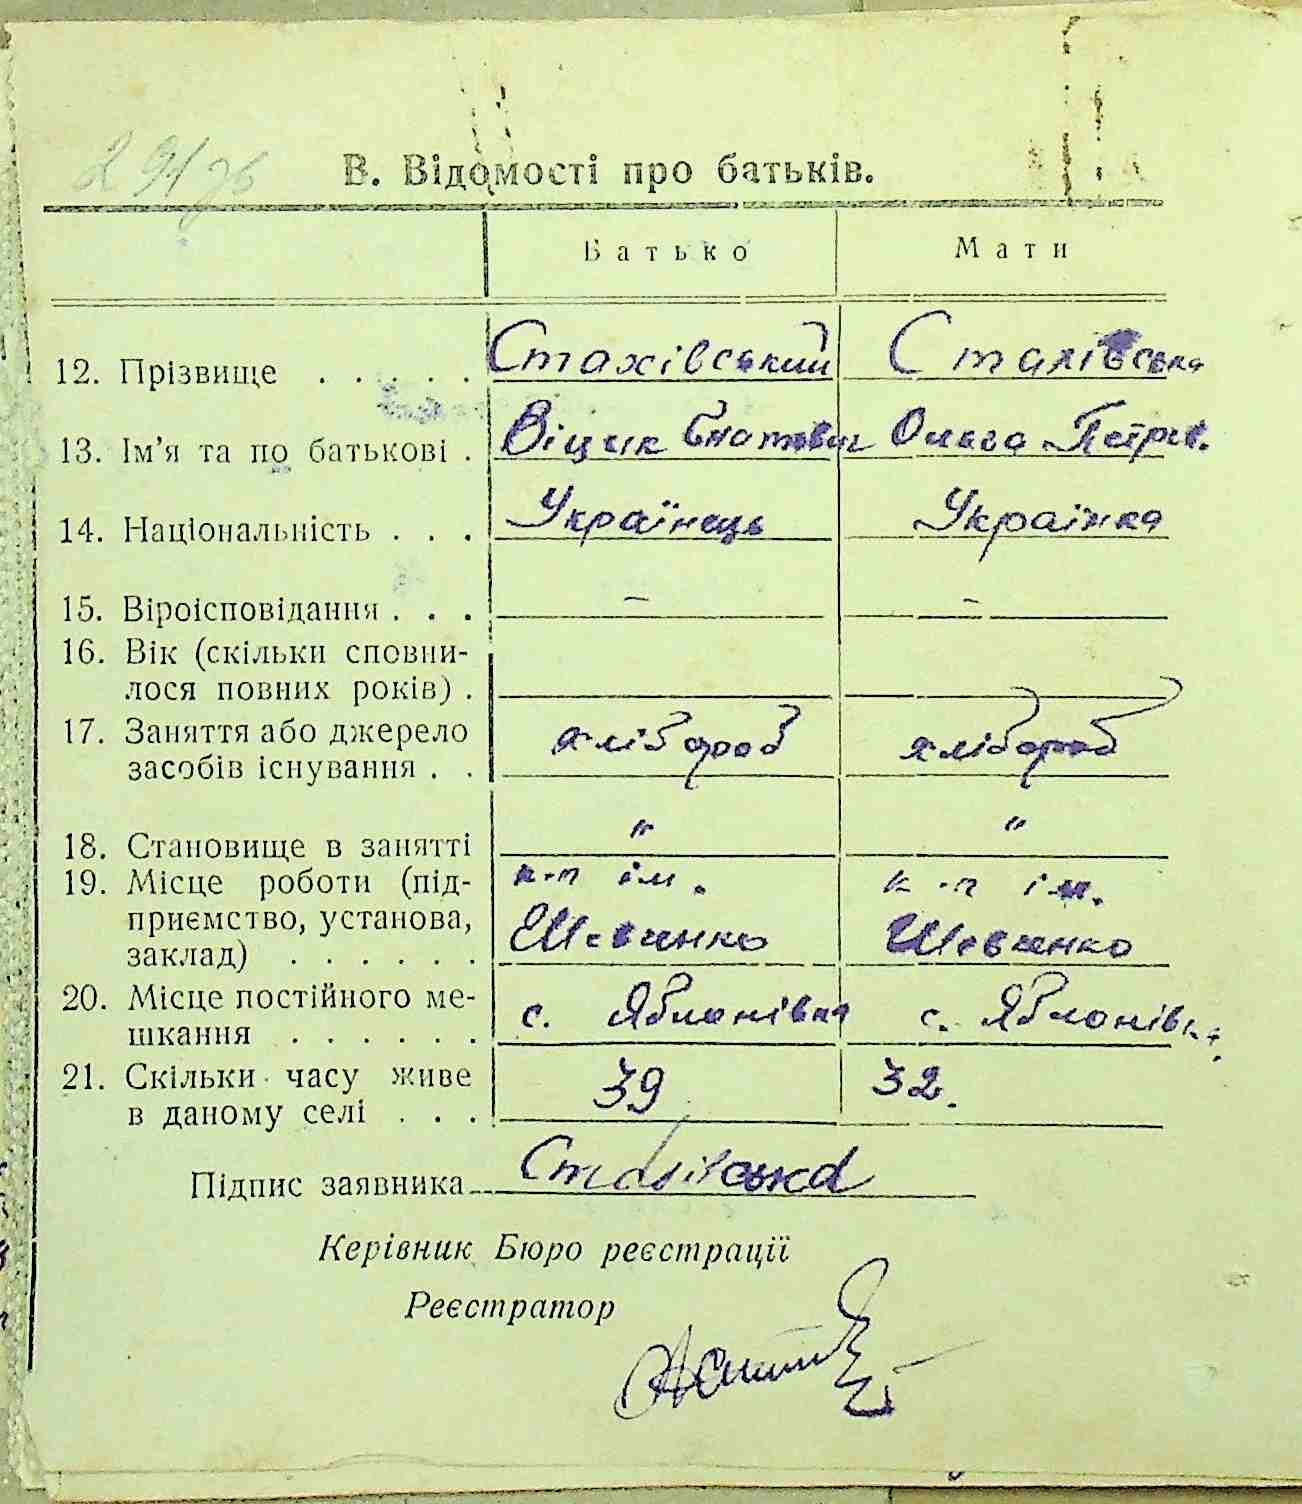 В. Відомості про батьків.
Батько Мати
12. Прізвище . . . . . Стахівський Стахівська
13. Ім'я та по батькові . Віцик Ольга Петрів.
14. Національність . . . Українець Українка
15. Віроісповідання . . . – –
16. Вік (скільки сповни-
лося повних років) .
17. Заняття або джерело
засобів існування . . хлібороб хлібороб
18. Становище в занятті " "
19. Місце роботи (під- к-п ім. к-п ім.
приємство, установа,
заклад) . . . . . . Шевченко Шевченко
20. Місце постійного ме- с. Яблонівка с. Яблонівка
шкання . . . . . .
21. Скільки часу живе 39 32.
в даному селі . . .
Підпис заявника Стахівська
Керівник Бюро реєстрації
Реєстратор